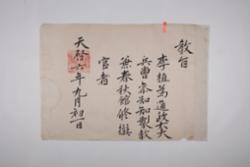 敎旨
李植爲通政大夫
兵曹參知知製敎
兼春秋館修撰
官者
天啓六年九月初一日